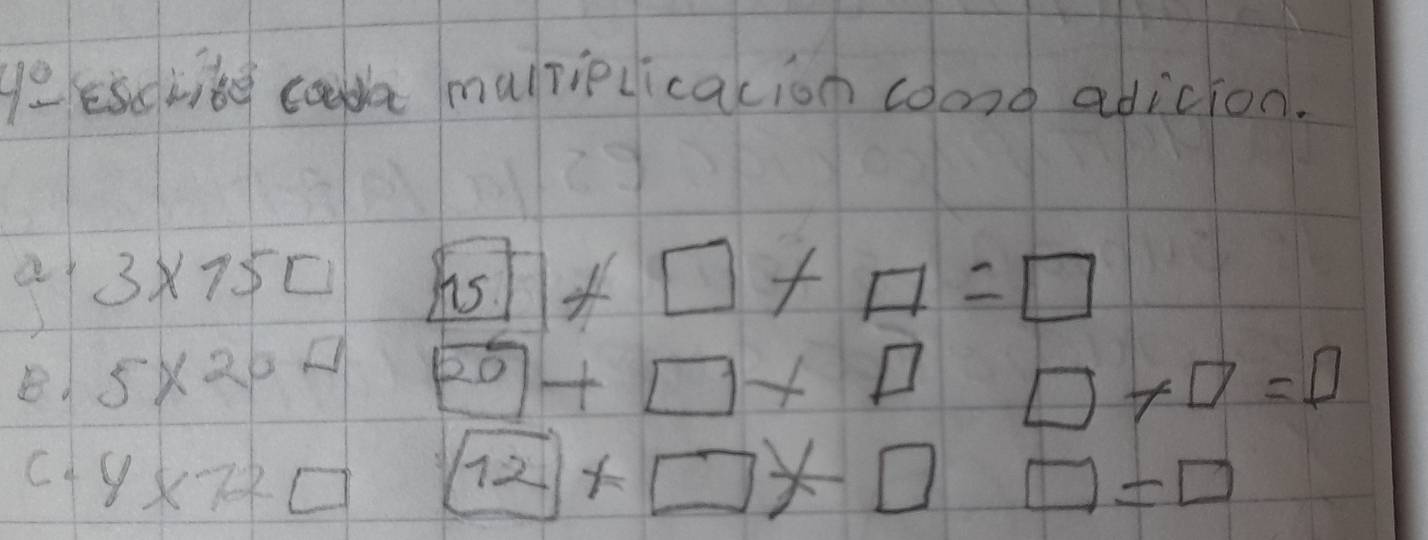 4º- Escribe cada multiplicacion como adicion.
a. 3 x 15 □ 15 + □ + □ = □
B. 5 x 20 □ 20 + □ + □ □ + □ = □
C. 4 x 12 □ 12 + □ + □ □ = □